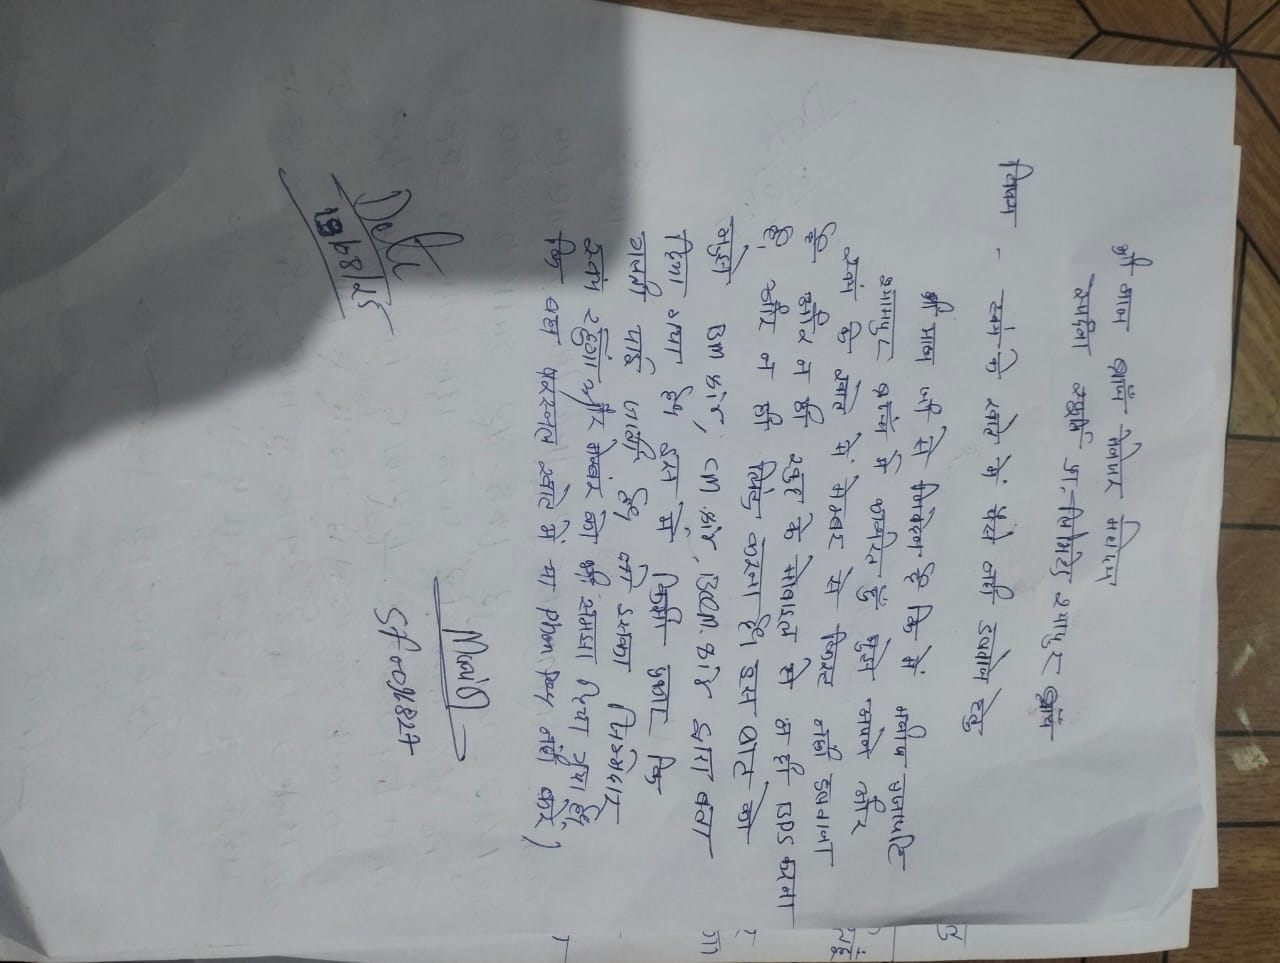 श्री मान ब्रांच मेनेजर महोदय
स्पंदना स्फूर्ति फा. लिमिटेड श्यापुर ब्रांच
विषय - स्वंम के खाते में पैसे नही डलवाने हेतु
श्री मान जी से निवेदन है कि मै मनीष प्रजापति
ब्रान्च में कार्यरत हूँ मुझे अपने और
स्वंम के खाते में मेम्बर से किस्त नही डलवाना
है और न ही खुद के मोबाइल से न ही BPS करना
है, और न ही रिसिव करना है। इस बात का
मुझे BM सर, CM सर, BCM. सर द्वारा बता
दिया गया है, इस में किसी प्रकार कि
गलती पाई जाती है, तो उसका जिम्मेदार
स्वंम रहूंगा और मेम्बर को भी समझा दिया गया है,
कि वहा परस्नल खाते में या Phon Pay नही करे)
Date
18/08/25
SF0094827